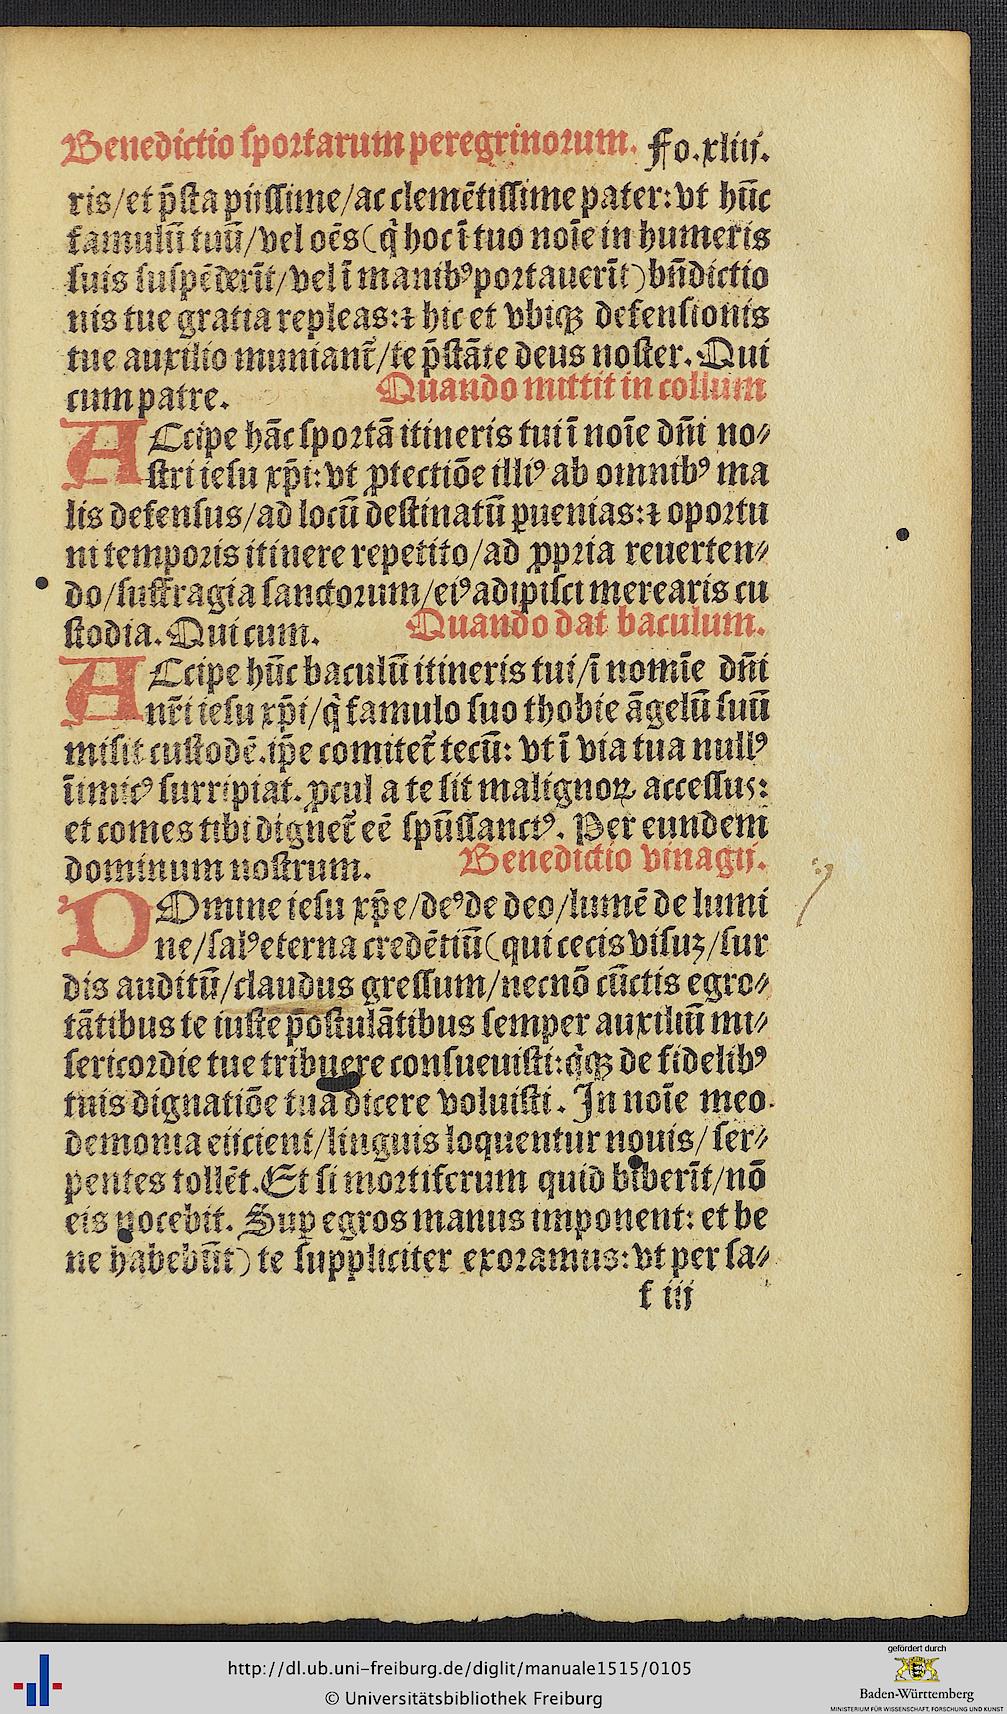 Benedictio sportarum peregrinorum. Fo.xliij.
ris/et p̄sta pijssime/ac clemētissime pater:vt hūc
famulū tuū/vel oēs(q̇ hoc ī tuo noīe in humeris
suis suspēderīt/vel ī manibꝰportauerīt)bn̄dictio
nis tue gratia repleas:⁊ hic et vbiqꝫ defensionis
tue auxilio muniant᷑/te p̄stāte deus noster. Qui
cum patre. Quando mittit in collum
ACcipe hāc sportā itineris tui ī noīe dn̄i no⸗
stri iesu xp̄i:vt ꝓtectiōe illiꝰ ab omnibꝰ ma
lis defensus/ad locū destinatū ꝑuenias:⁊ oportu
ni temporis itinere repetito/ad ꝓpria reuerten⸗
do/suffragia sanctorum/eiꝰadipisci merearis cu
stodia. Qui cum. Quando dat baculum.
ACcipe hūc baculū itineris tui/ī nomīe dn̄i
nr̄i iesu xp̄i/q̇ famulo suo thobie āgelū suū
misit custodē.ip̄e comitet᷑ tecū: vt ī via tua nullꝰ
īimicꝰ surripiat. ꝓcul a te sit malignoꝝ accessus:
et comes tibi dignet᷑ eē spūssanctꝰ. Per eundem
dominum nostrum. Benedictio vinagij.
DOmine iesu xp̄e/deꝰde deo/lumē de lumi
ne/salꝰeterna credētiū(qui cecis visuꝫ/sur
dis auditū/claudus gressum/necnō cūctis egro⸗
tātibus te iuste postulātibus semper auxiliū mi⸗
sericordie tue tribuere consueuisti:q̇qꝫ de fidelibꝰ
tuis dignatiōe tua dicere voluisti. In noīe meo
demonia eijcient/linguis loquentur nouis/ser⸗
pentes tollēt.Et si mortiferum quid biberīt/nō
eis nocebit. Suꝑ egros manus imponent: et be
ne habebūt) te suppliciter exoramus:vt per sa⸗
f iij
http://dl.ub.uni-freiburg.de/diglit/manuale1515/0105
© Universitätsbibliothek Freiburg
gefördert durch
Baden-Württemberg
MINISTERIUM FÜR WISSENSCHAFT, FORSCHUNG UND KUNST